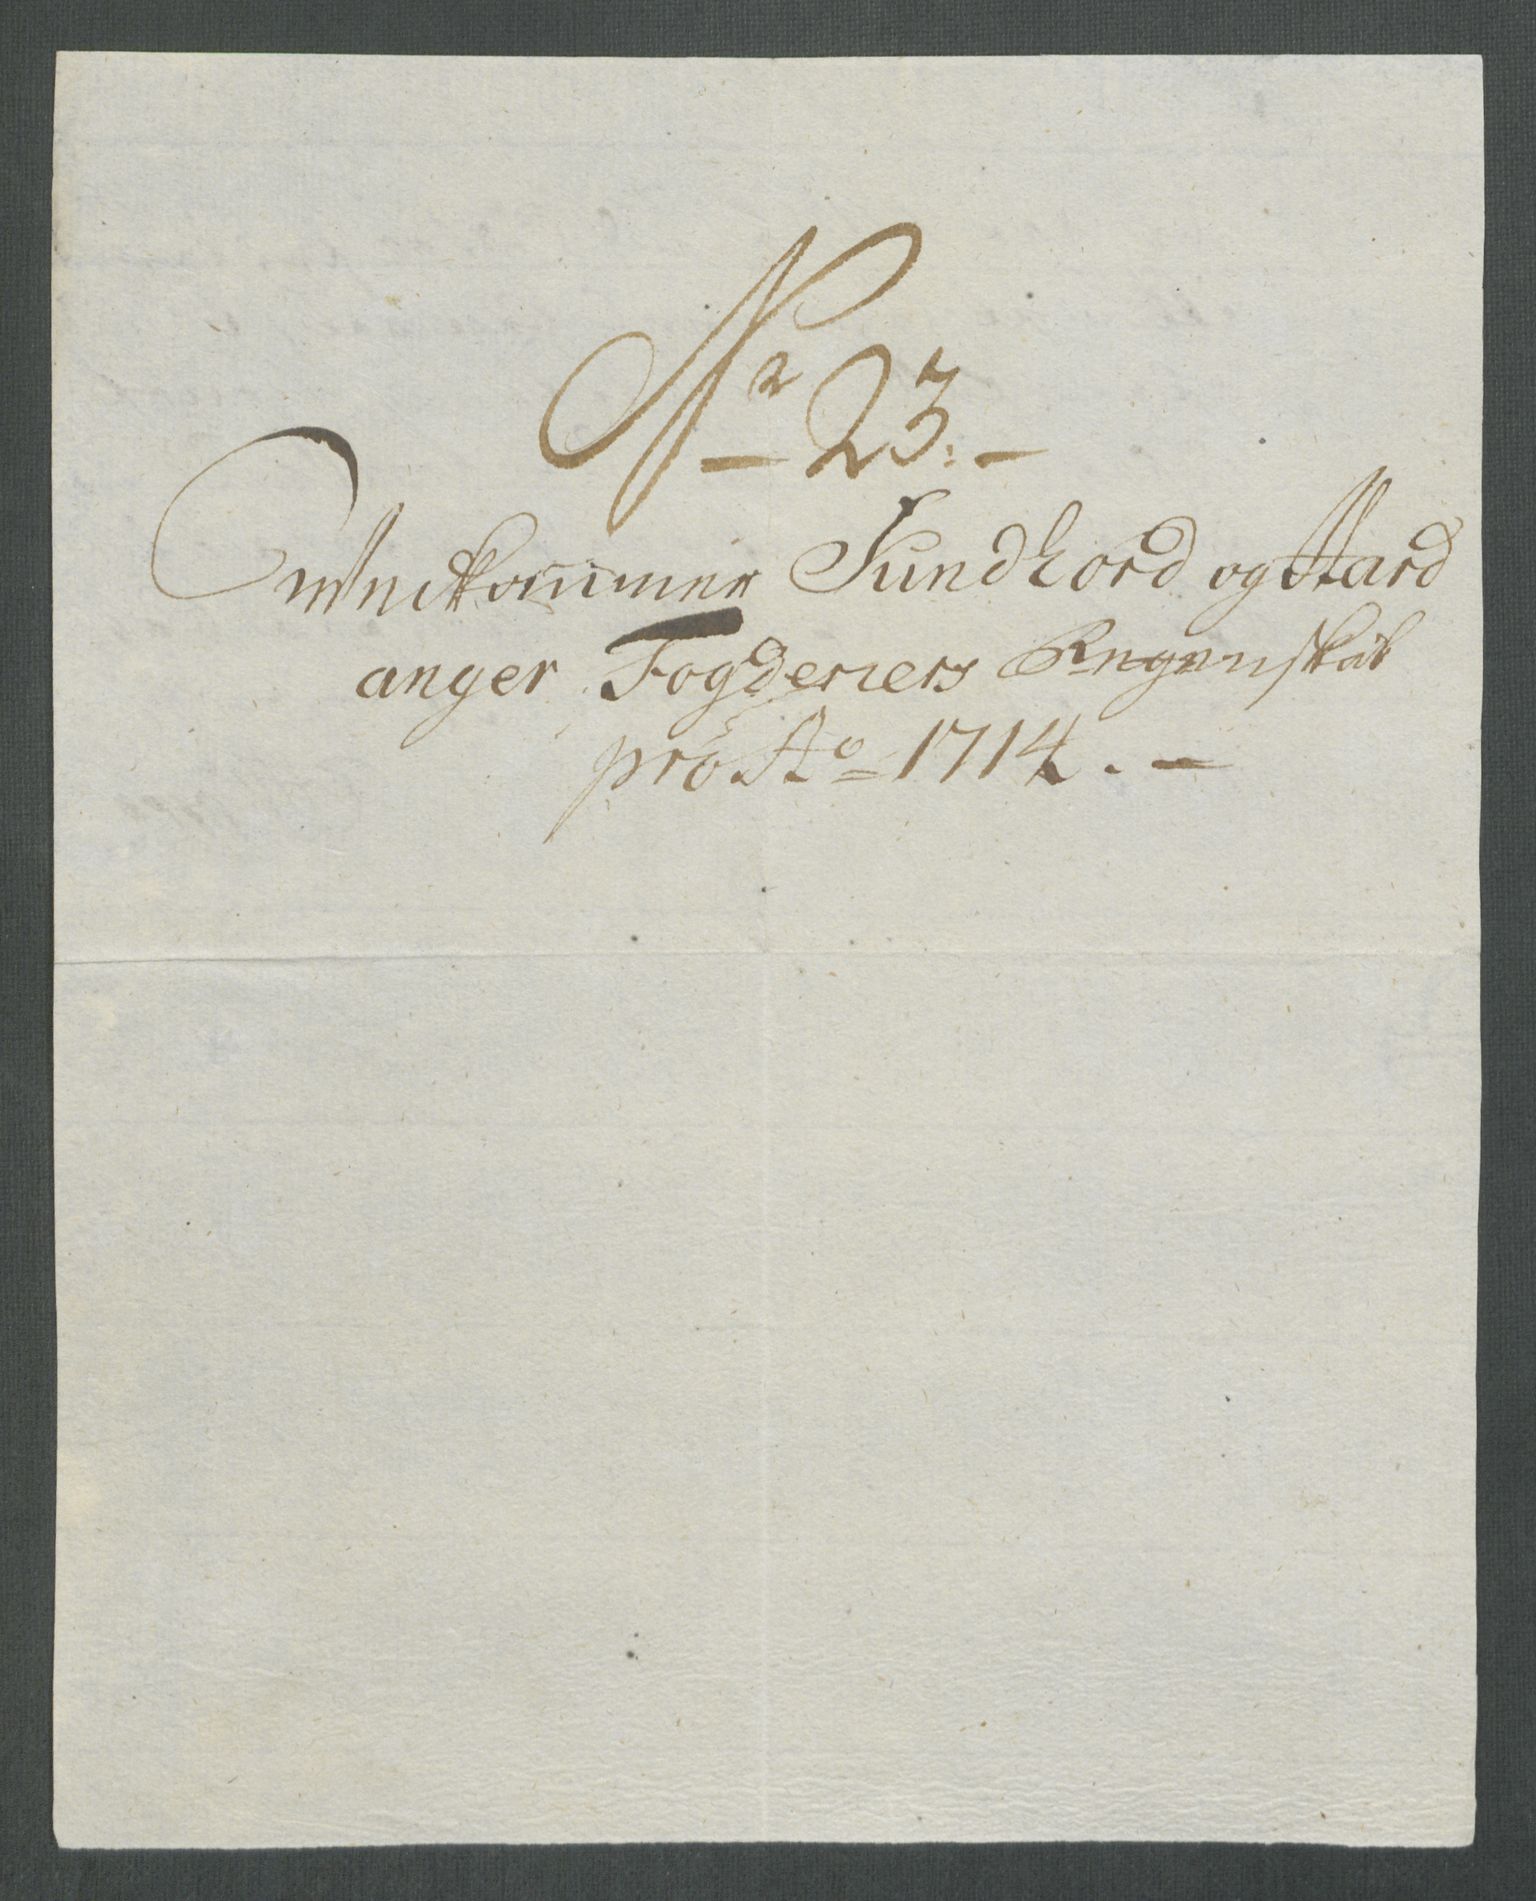 No 23.
Vedkommer Sundhord og Hard
anger Fogderiers Regenskab
pro Ao 1714.